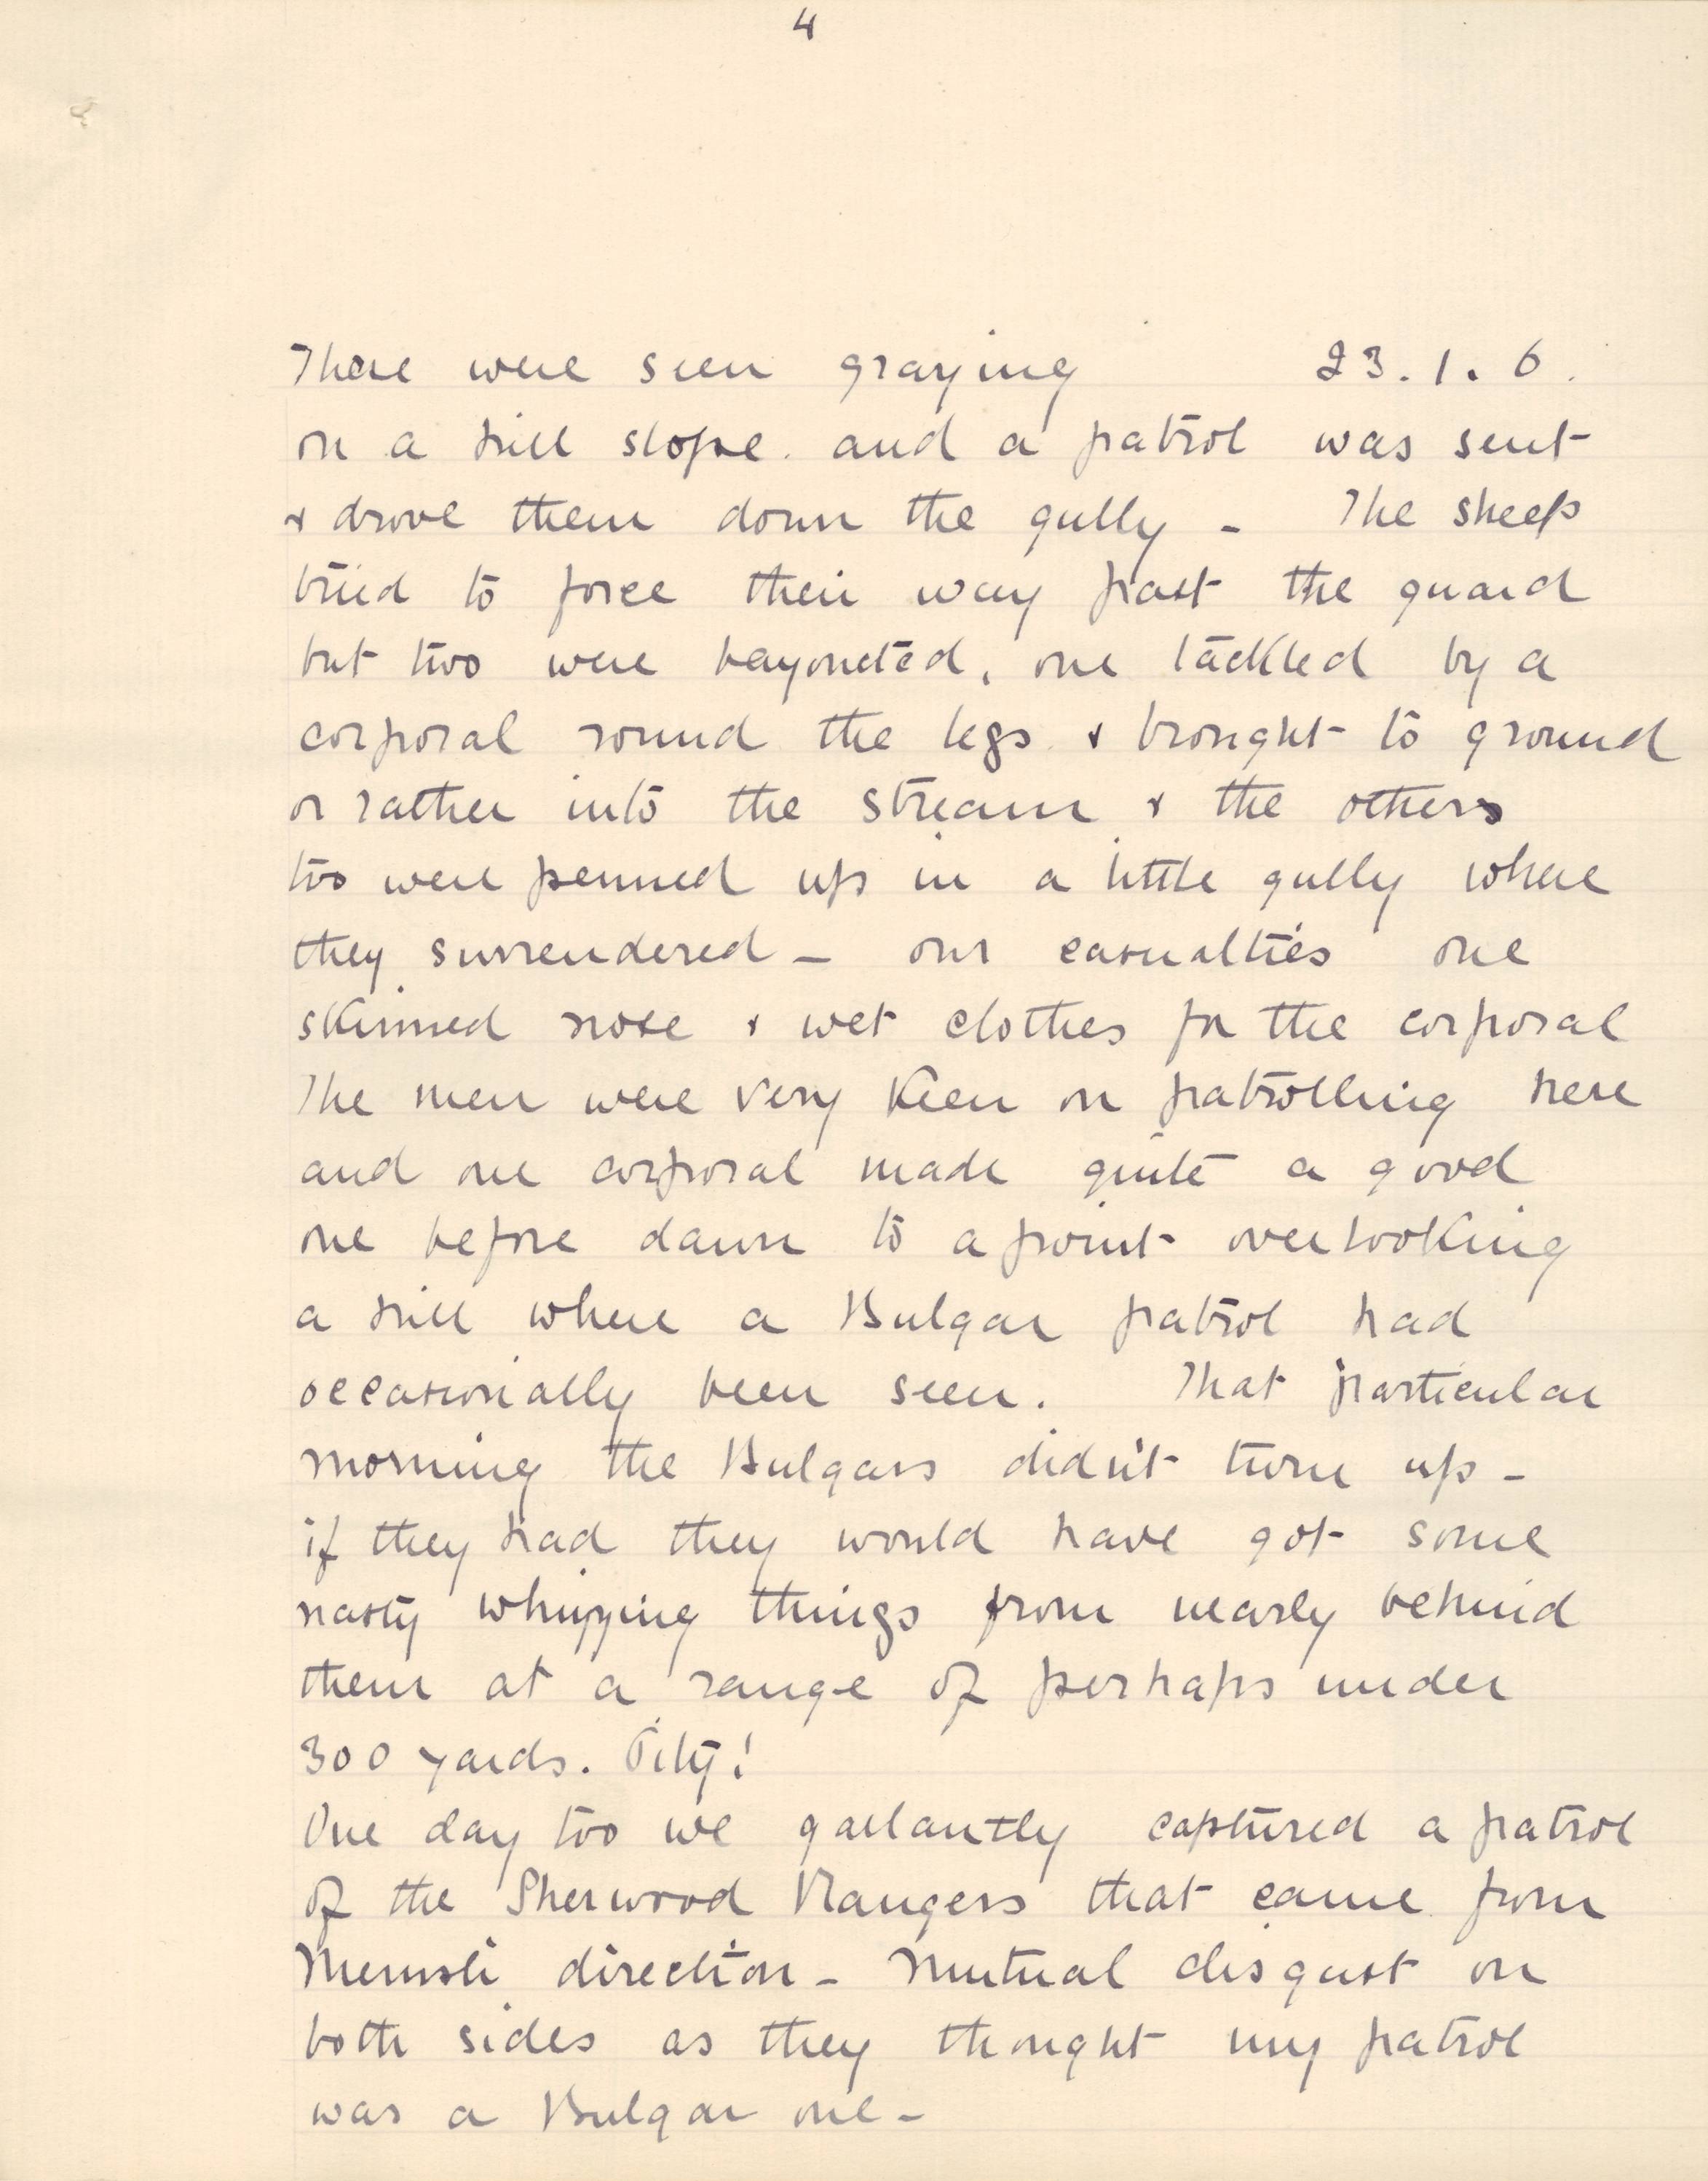 4
These were seen graying 23.1.6.
on a hill slope. and a patrol was sent
& drove them down the gully - The sheep
tried to force their way past the guard
but two were bayoneted, one tackled by a
corporal round the legs & brought to ground
or rather into the stream & the others
too were penned up in a little gully where
they surrendered - our casualties one
skinned nose & wet clothes for the corporal
The men were very keen on patrolling here
and one corporal made quite a good
one before dawn to a point overlooking
a hill where a Bulgar patrol had
occasionally been seen. That particular
morning the Bulgars didn't turn up -
if they had they would have got some
nasty whizzing things from nearly behind
them at a range of perhaps under
300 yards. Pity!
One day too we gallantly captured a patrol
of the Sherwood Rangers that came from
Memsli direction - Mutual disgust on
both sides as they thought my patrol
was a Bulgar one -